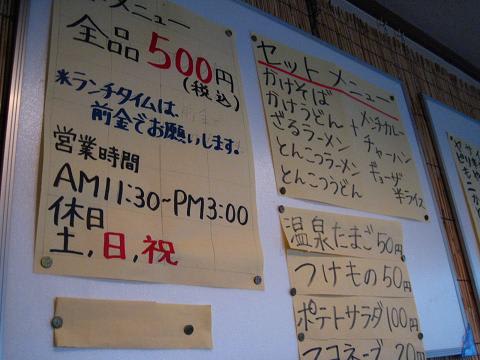 メニュー
全品500円
(税込)
※ランチタイムは、
前金でお願いします。
営業時間
AM11:30~PM3:00
休日
土,日,祝
セットメニュー
かけそば
かけうどん
ざるラーメン
とんこつラーメン
とんこつうどん
+
ミニカレー
チャーハン
ギョーザ
半ライス
温泉たまご50円
つけもの50円
ポテトサラダ100円
マヨネーズ20円